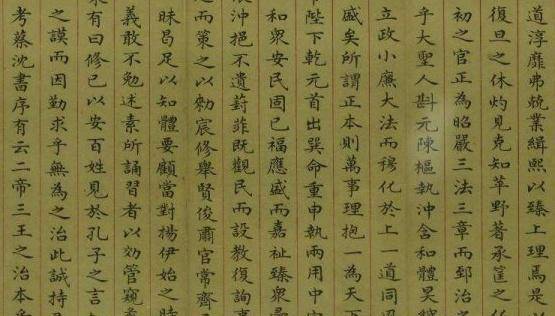 道淳靡弗兢業緝熙以臻上理焉是
復旦之休灼見克知苹野著承筐之
初之官正為昭嚴三法三章而郅治
乎大聖人斟元陳樞執沖含和體昊
立政小廉大法而穆化於上一道同
盛矣所謂正本則萬事理抱一為天下
帝陛下乾元首出巽命重申執兩用中
和衆安民固已福應盛而嘉祉臻衆
沖挹不遺葑菲既觀民而設教復詢事
而策之以勑宸修舉賢俊肅官常齊
昧曷足以知體要顧當對揚伊始之時
義敢不勉述素所誦習者以効管窺
有曰修已以安百姓見於孔子之言
之謨而因勤求乎無為之治此誠持
考蔡沈書序有云二帝三王之治本